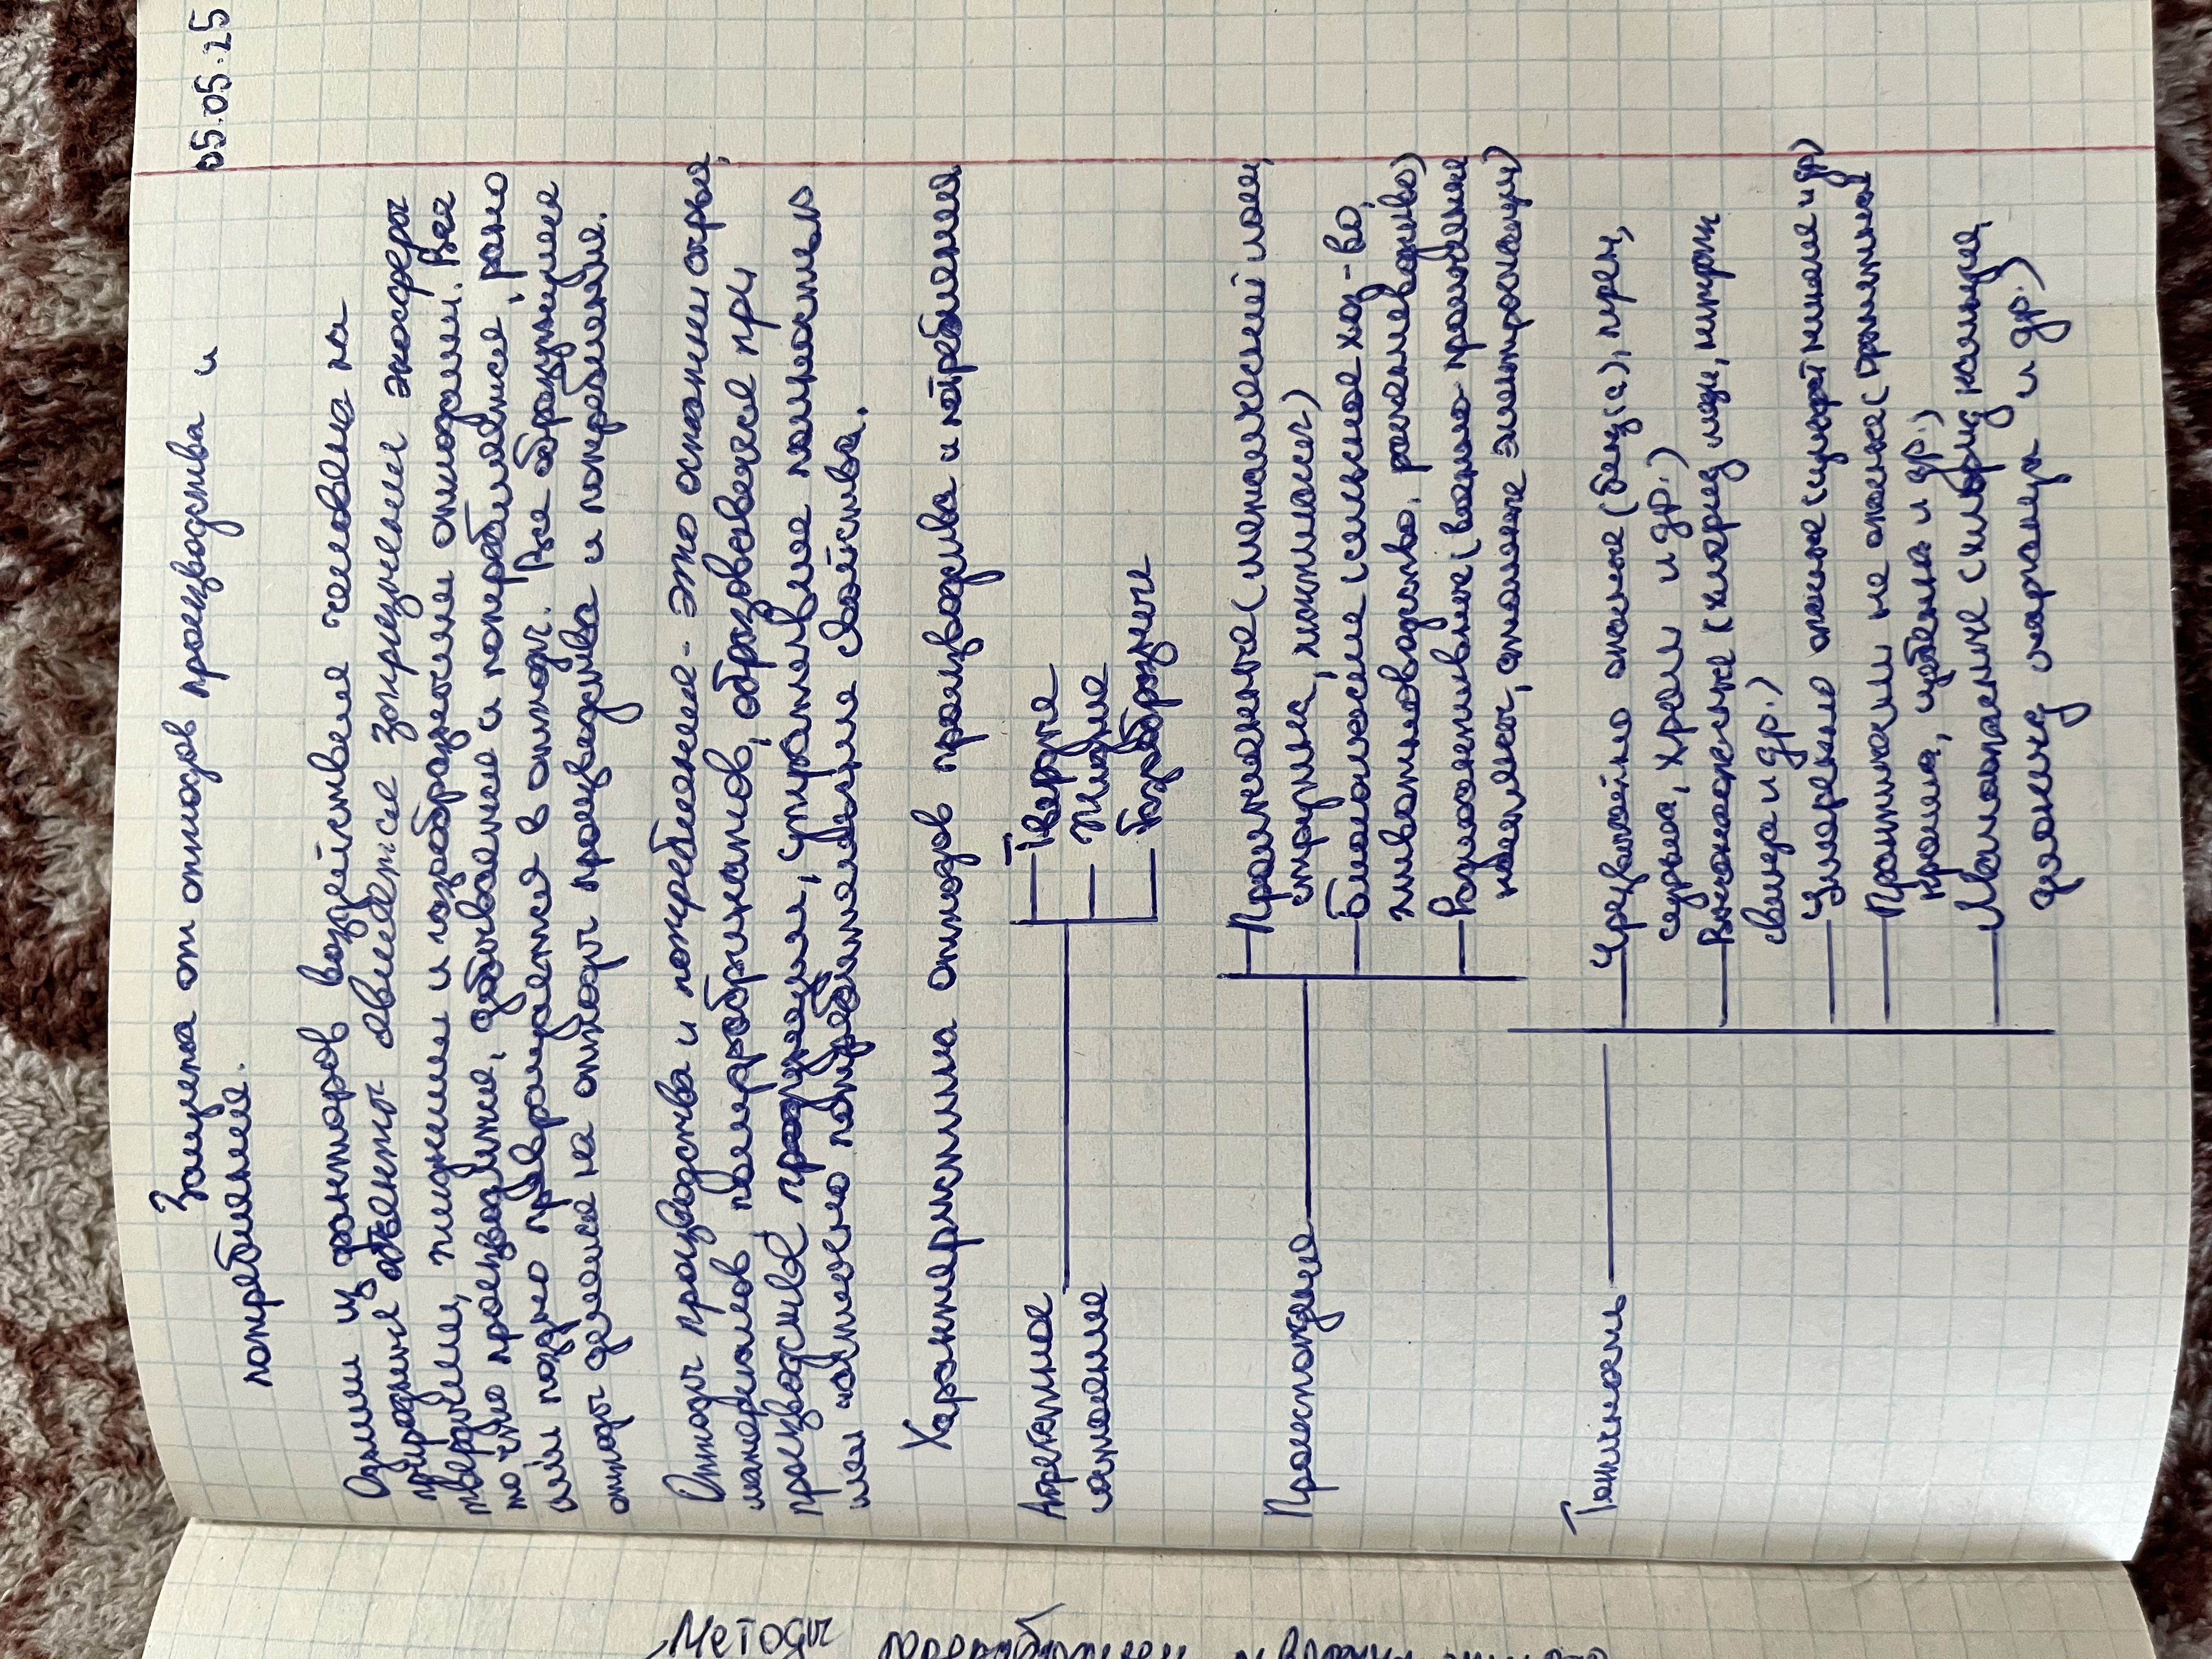 05.05.25
Защита от отходов производства и
потребления.
Одним из факторов воздействия человека на
природные объекты является загрязнение экосферы
твердыми, жидкими и газообразными отходами. Все
то что производится, добывается и потребляется, рано
или поздно превращается в отходы. Все образующиеся
отходы делятся на отходы производства и потребления.
Отходы производства и потребления - это остатки сырья,
материалов, полуфабрикатов, образовавшееся при
производстве продукции, утратившие полностью
или частично потребительские свойства.
Характеристика отходов производства и потребления
Агрегатное
состояние
Твердые
Жидкие
Газообразные
Происхождение
Промышленные (металлический лом,
стружка, пластмасса)
Биологические (сельское хоз-во,
животноводство, растениеводство)
Радиоактивные (
Токсичность
Чрезвычайно опасные (бенз(а)пирен,
сурьма, хром и др.)
Высокоопасные (хлорид меди, нитрат
свинца и др.)
Умеренно опасные ( и др)
Практически не опасные (
крошка, щебенка и др.)
Малоопасные (хлорид кальция,
и др.)
Методы переработки